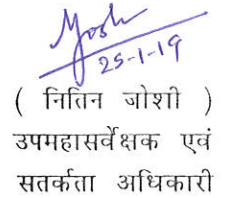 Joshi
25-1-19
( नितिन जोशी )
उपमहासर्वेक्षक एवं
सतर्कता अधिकारी